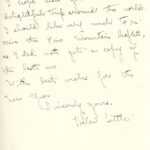 I hope
delightful trip around the world.
I should like very much to re-
ceive the Pine Mountain leaflets,
as I did not get a copy of
the last one.
With best wishes for the
New Year
Sincerely yours,
Little